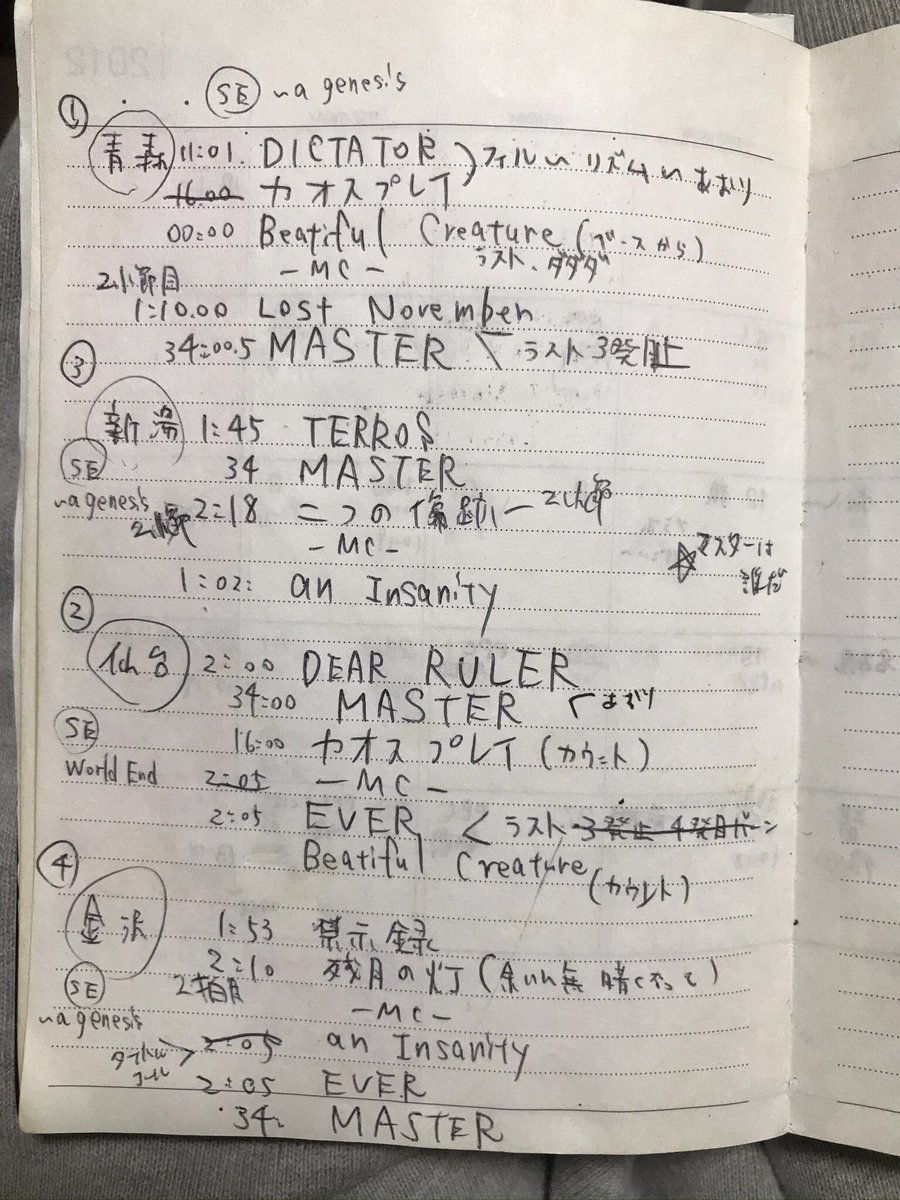 SE ~a genesis
①
青森 11:01. DICTATOR フィル〜リズム〜あおり
16:00 カオスプレイ
00:00 Beatiful Creature (ベースから)
- MC - ラスト、ダダダ
2小節目
1:10.00 Lost November
34:00.5 MASTER ラスト3発止
③
新潟 1:45 TERROS
SE 34 MASTER
~a genesis 2:18 二つの傷跡 - 2小節
- MC -
☆マスターは誰だ
1:02: an Insanity
②
仙台 2:00 DEAR RULER
34:00 MASTER < あおり
SE 16:00 カオスプレイ (カウント)
World End 2:05 - MC -
2:05 EVER < ラスト 3発止 4発目バーン
Beatiful Creature (カウント)
④
金沢 1:53 禁示録
2:10 残月の灯 (余いん無 暗くなって)
SE 2拍目
~a genesis - MC -
タイトルコール > 2:05 an Insanity
2:05 EVER
34: MASTER